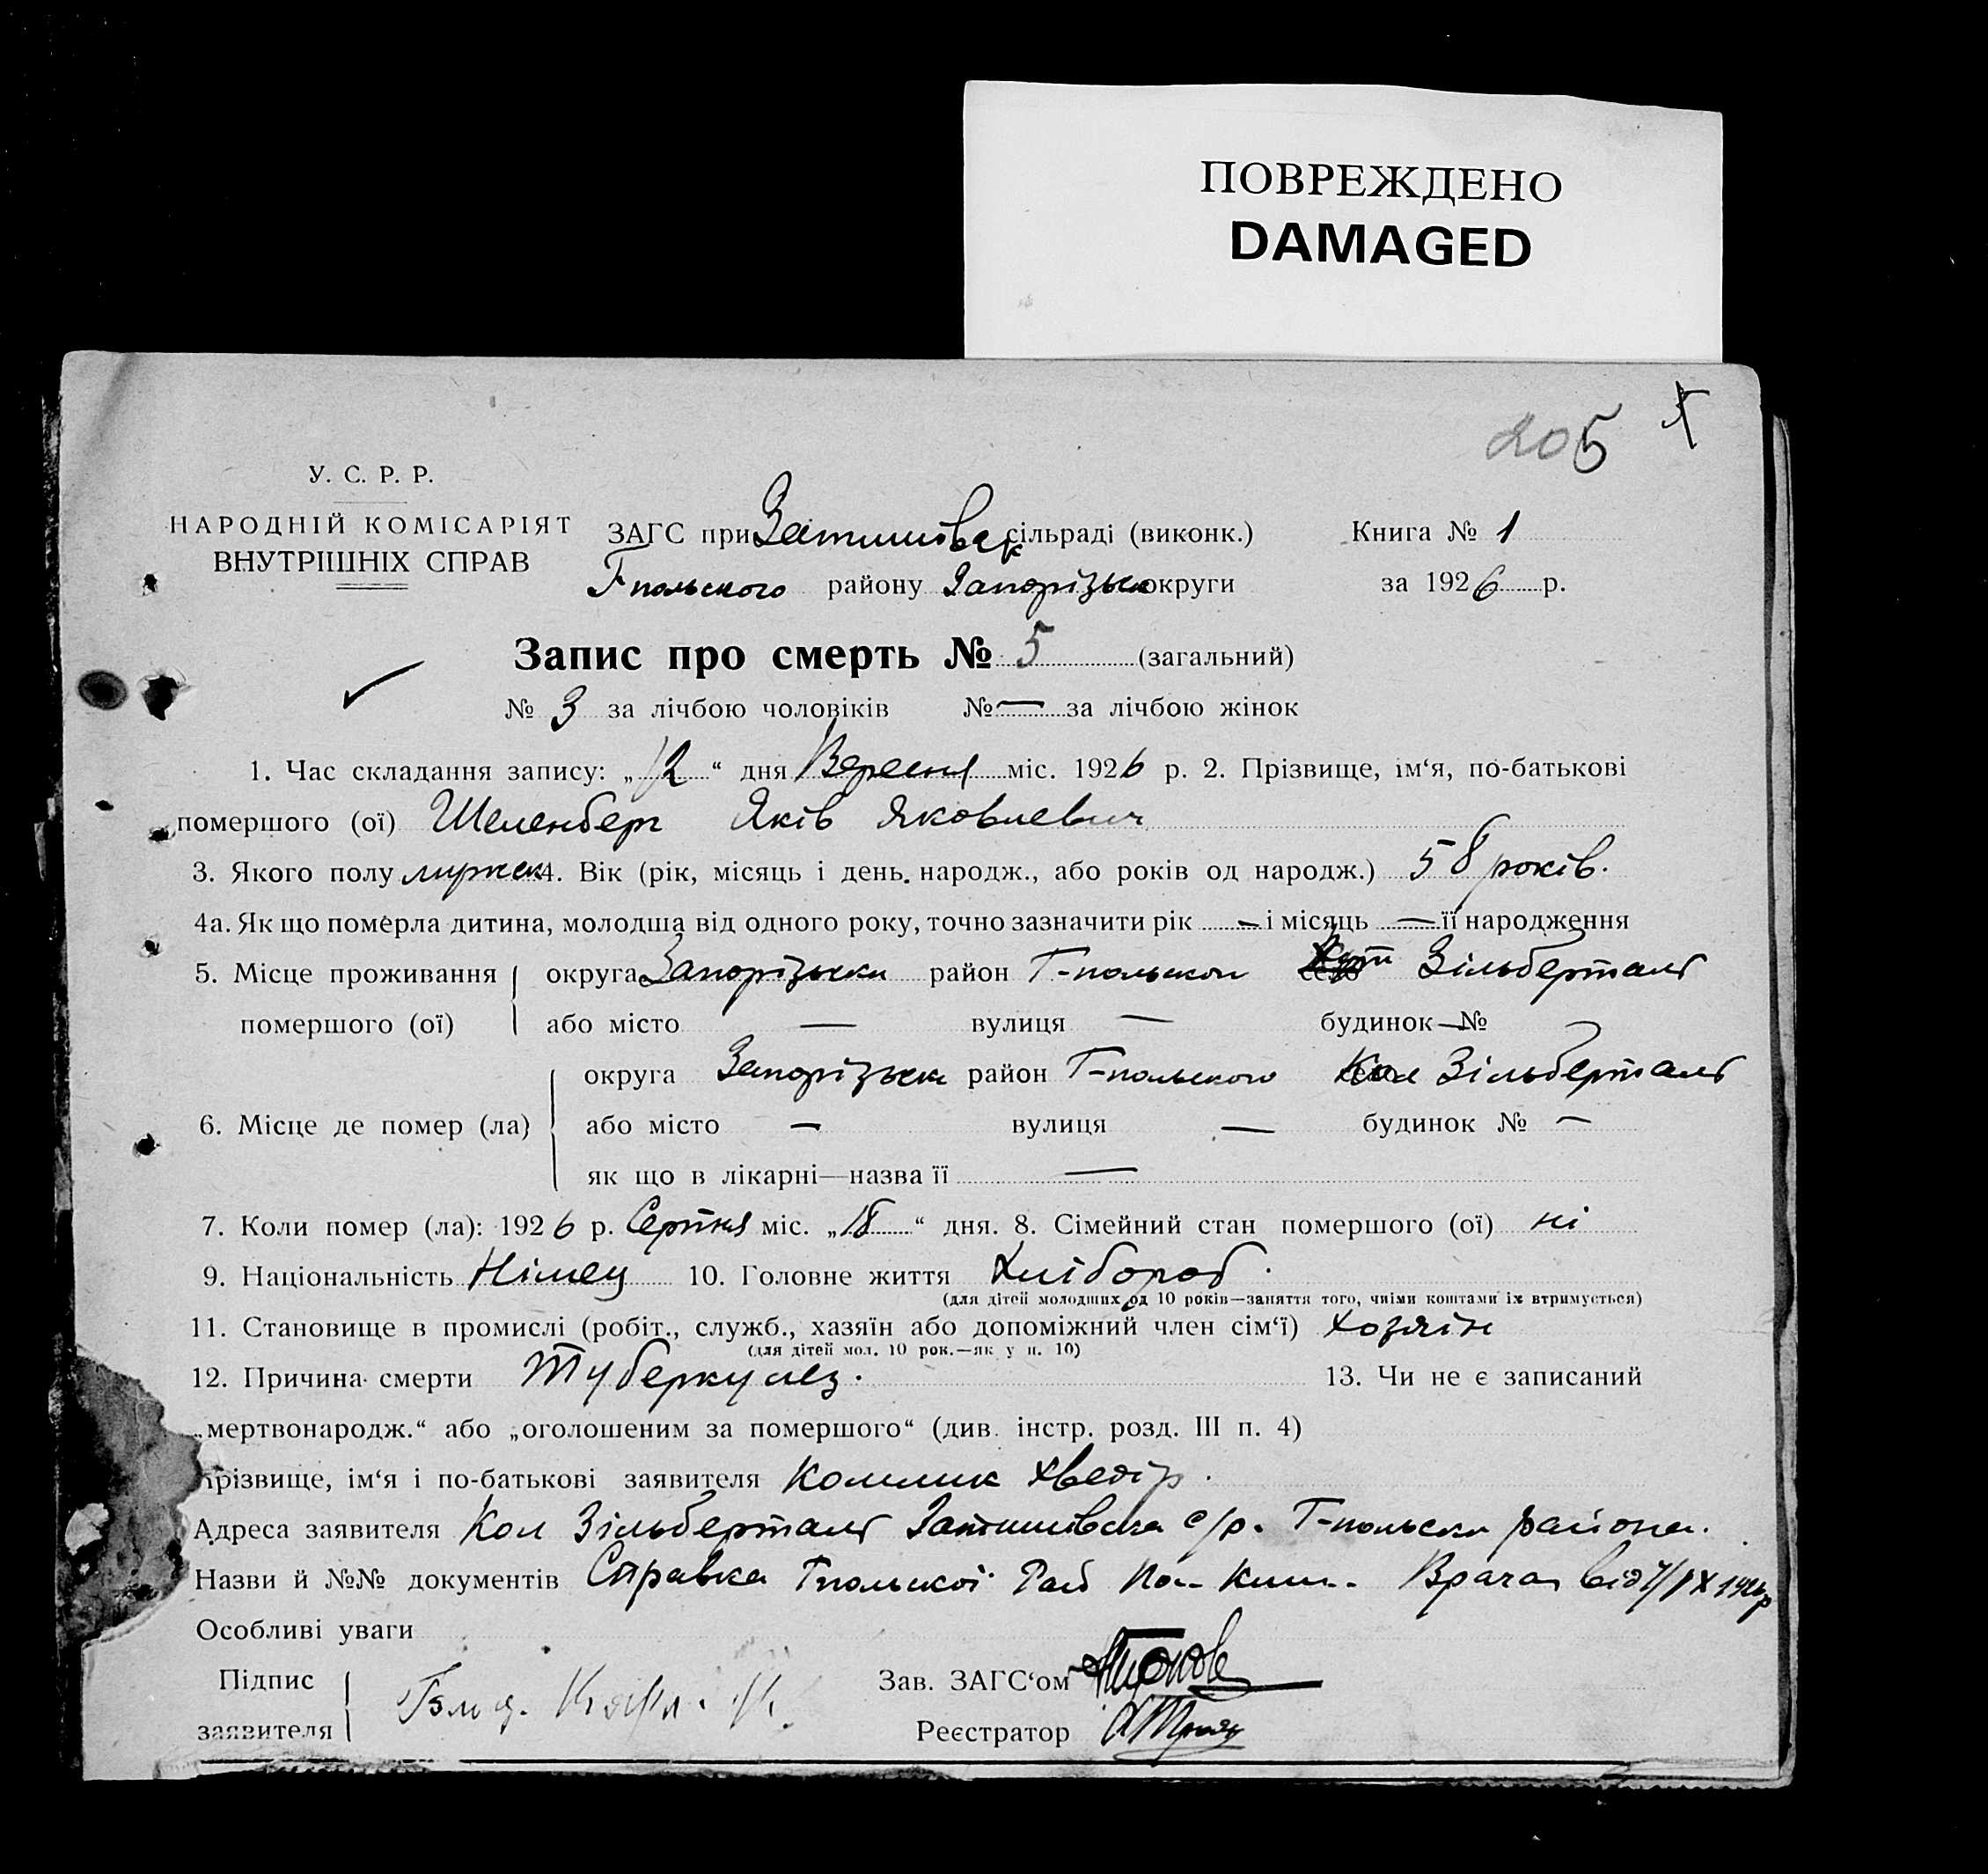 ПОВРЕЖДЕНО
DAMAGED
205
У. С. Р. Р.
НАРОДНІЙ КОМІСАРІЯТ
ВНУТРІШНІХ СПРАВ
ЗАГС при Затишівськ сільраді (виконк.) Книга № 1
Гпольского району Запорізько округи за 1926 р.
Запис про смерть № 5 (загальний)
№ 3 за лічбою чоловіків № — за лічбою жінок
1. Час складання запису: „12“ дня Вересня міс. 1926 р. 2. Прізвище, ім‘я, по-батькові
помершого (ої) Шеленберг Яків Яковлевич
3. Якого полу мужск 4. Вік (рік, місяць і день народж., або років од народж.) 58 років.
4а. Як що померла дитина, молодша від одного року, точно зазначити рік — і місяць — її народження
5. Місце проживання округа Запорізьки район Г-польскол село Зільберталь
помершого (ої) або місто — вулиця — будинок — №
округа Запорізьки район Г-польского Кол Зільберталь
6. Місце де помер (ла) або місто — вулиця — будинок № —
як що в лікарні—назва її —
7. Коли помер (ла): 1926 р. Серпня міс. „18“ дня. 8. Сімейний стан помершого (ої) ні
9. Національність Німец 10. Головне життя Хлібороб.
(для дітей молодших од 10 років—заняття того, чиїми коштами їх втримується)
11. Становище в промислі (робіт., служб., хазяїн або допоміжний член сім‘ї) хозяїн
(для дітей мол. 10 рок.—як у п. 10)
12. Причина смерти Туберкульз. 13. Чи не є записаний
„мертвонародж.“ або „оголошеним за помершого“ (див. інстр. розд. III п. 4)
прізвище, ім‘я і по-батькові заявителя Хведір.
Адреса заявителя Кол Зільберталь Затишівска с/р. Г-польски района.
Назви й №№ документів Справка Гпольскої Рай Врача від 7/IX 1926р
Особливі уваги
Підпис Зав. ЗАГС‘ом
заявителя Реєстратор